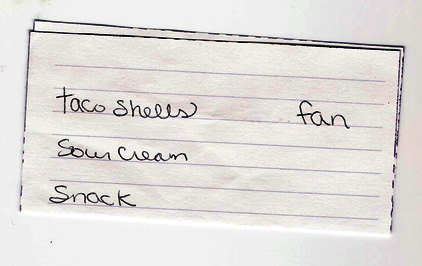 taco shells fan
sour cream
Snack